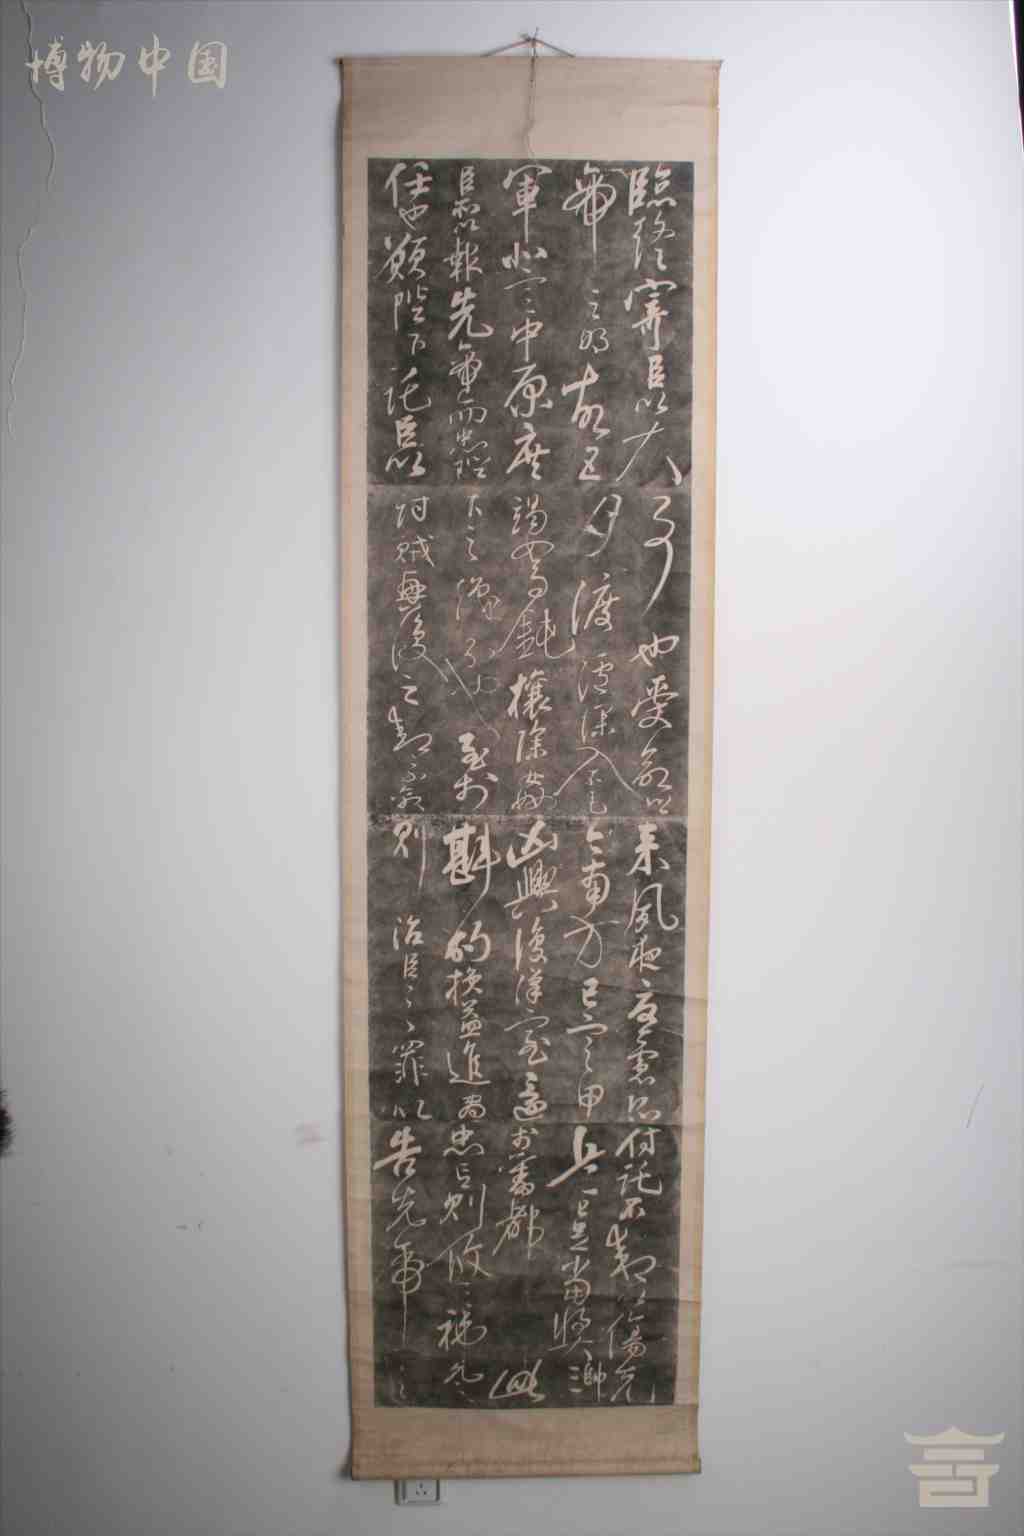 博物中国
臨終寄臣以大事也受命以來夙夜憂慮恐付託不效以傷先
帝之明故五月渡瀘深入不毛今南方已定甲兵已足當獎帥三
軍北定中原庶竭駑鈍攘除姦凶興復漢室還於舊都此
臣所以報先帝而忠陛下之職分也至於斟酌損益進盡忠言則攸之禕允之
任也願陛下託臣以討賊興復之效不效則治臣之罪以告先帝之